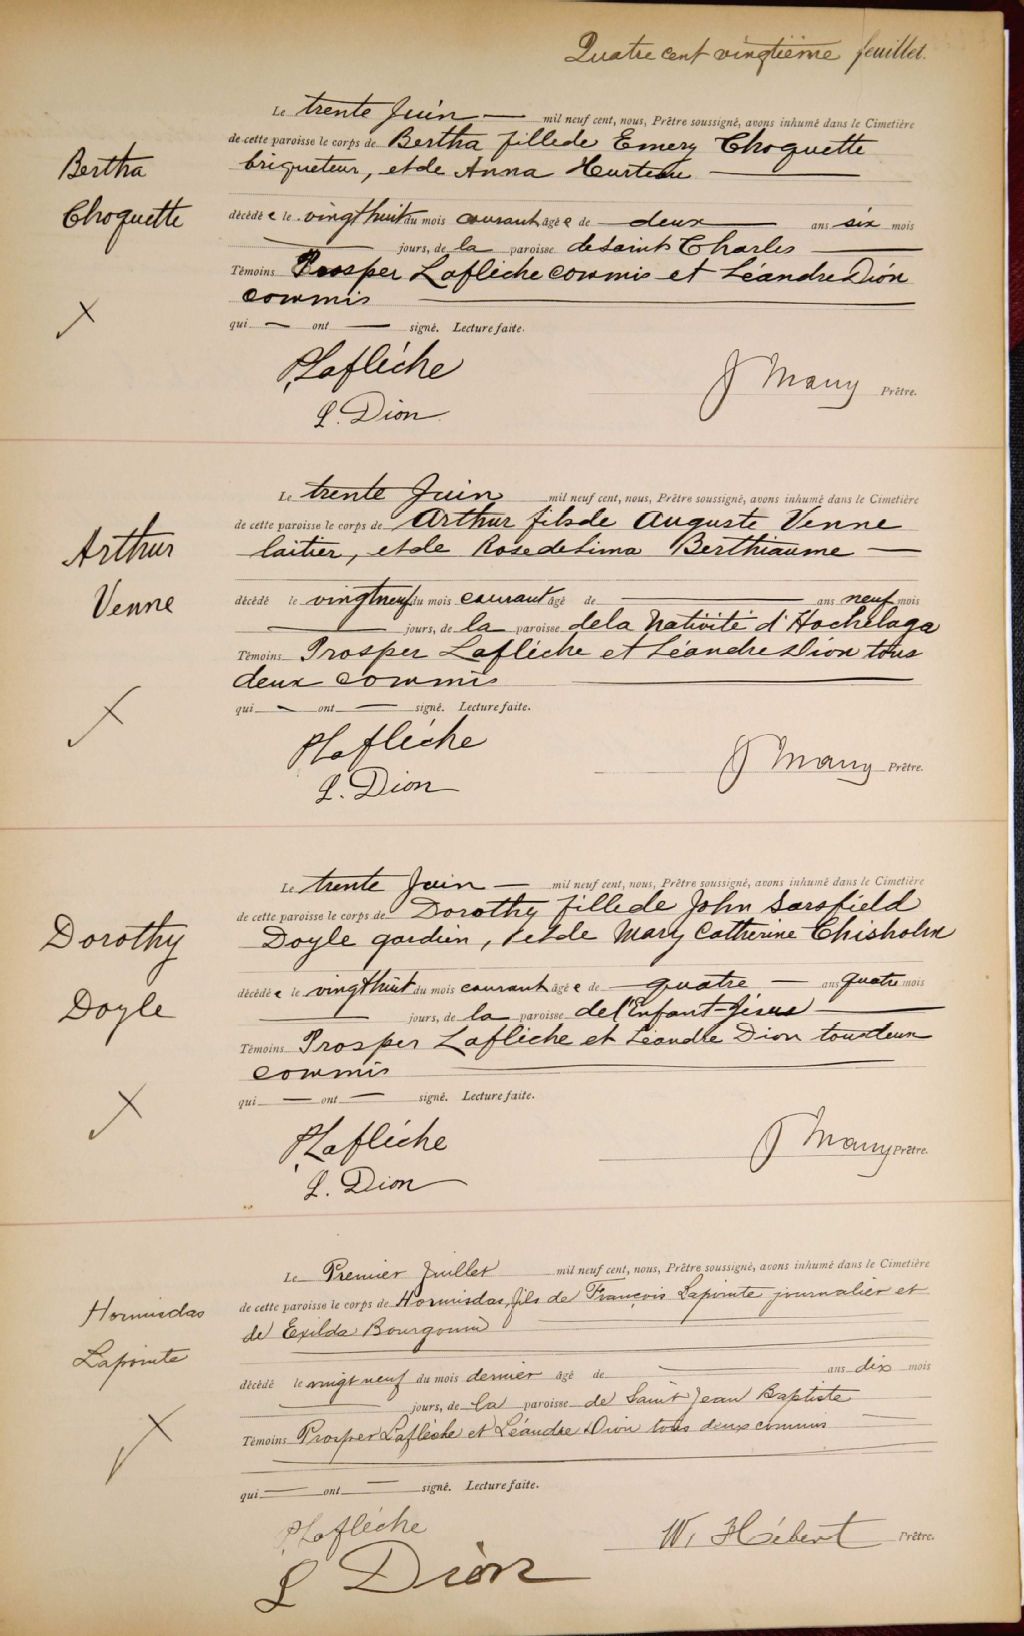 Quatre cent vingtième feuillet.
Le trente Juin — mil neuf cent, nous, Prêtre soussigné, avons inhumé dans le Cimetière
de cette paroisse le corps de Bertha fille de Emery Choquette
Bertha
briqueteur, et de Anna Hurteau
Choquette
décédée le vingt huit du mois courant âgée de deux ans six mois
jours, de la paroisse de Saint Charles
Témoins Prosper Laflèche commis et Léandre Dion
commis
qui — ont — signé. Lecture faite.
P. Laflèche
J Many Prêtre.
L. Dion
Le trente Juin mil neuf cent, nous, Prêtre soussigné, avons inhumé dans le Cimetière
de cette paroisse le corps de Arthur fils de Auguste Venne
Arthur
laitier, et de Rose de Lima Berthiaume —
Venne
décédé le vingt neuf du mois courant âgé de ans neuf mois
jours, de la paroisse de la Nativité d'Hochelaga
Témoins Prosper Laflèche et Léandre Dion tous
deux commis
qui — ont — signé. Lecture faite.
P Laflèche
J Many Prêtre.
L. Dion
Le trente Juin — mil neuf cent, nous, Prêtre soussigné, avons inhumé dans le Cimetière
de cette paroisse le corps de Dorothy fille de John Sarsfield
Dorothy
Doyle gardien, et de Mary Catherine Chisholm
Doyle
décédée le vingt huit du mois courant âgée de quatre — ans quatre mois
jours, de la paroisse de l'Enfant-Jésus
Témoins Prosper Laflèche et Léandre Dion tous deux
commis
qui — ont — signé. Lecture faite.
P. Laflèche
J Many Prêtre.
L. Dion
Le Premier Juillet mil neuf cent, nous, Prêtre soussigné, avons inhumé dans le Cimetière
de cette paroisse le corps de Hormisdas, fils de François Lapointe journalier et
Hormisdas
de Exilda Bourgouin
Lapointe
décédé le vingt neuf du mois dernier âgé de ans dix mois
jours, de la paroisse de Saint Jean Baptiste
Témoins Prosper Laflèche et Léandre Dion tous deux commis
qui — ont — signé. Lecture faite.
P. Laflèche
W. Hébert Prêtre.
L Dion